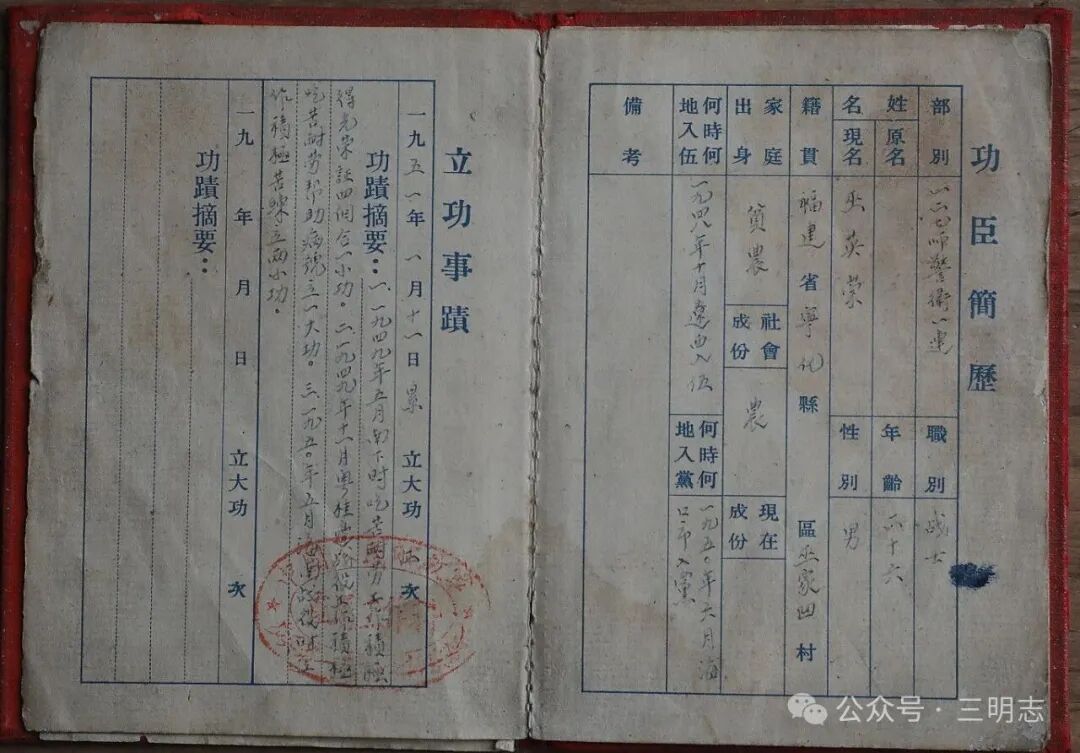 功臣簡歷
部別 一二七师警衛一連 職別 战士
姓名 原名 年齡 二十六
現名 巫英荣 性別 男
籍貫 福建省寧化縣 區巫家凹村
家庭出身 貧農 社會成份 農 現在成份
何時何地入伍 一九四八年十月遼西入伍 何時何地入黨 一九五〇年六月海口市入黨
備考
立功事蹟
一九五一年一月十一日累立大功 次
功蹟摘要：一、一九四九年五月南下时吃苦耐劳工作積極
得光荣証四個合一小功。二、一九四九年十一月粤桂 积極
吃苦耐劳帮助病號立一大功。三、一九五〇年五月海南战役
作積極苦練立两小功。
一九 年 月 日 立大功 次
功蹟摘要：
公众号·三明志